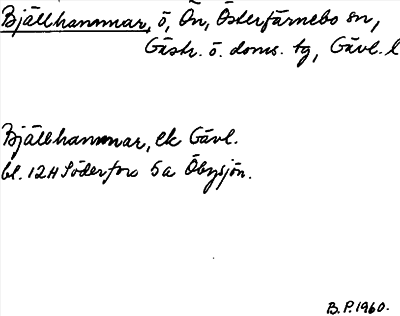 Bjällhammar, ö, Ön, Österfärnebo sn,
Gästr. ö. doms. tg, Gävl. l
Bjällhammar, ek Gävl.
bl. 12H Söderfors 5a Öbysjön.
B.P. 1960.